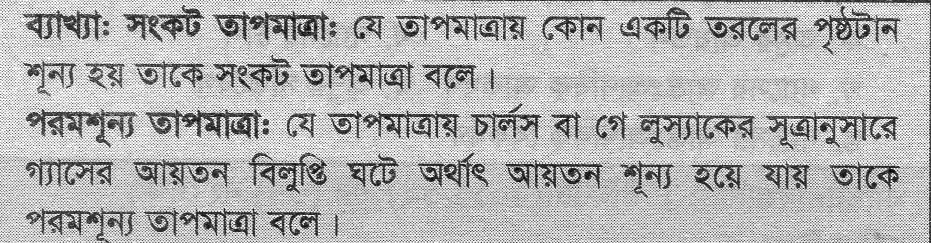 ব্যাখ্যা: সংকট তাপমাত্রা: যে তাপমাত্রায় কোন একটি তরলের পৃষ্ঠটান
শূন্য হয় তাকে সংকট তাপমাত্রা বলে।
পরমশূন্য তাপমাত্রা: যে তাপমাত্রায় চার্লস বা গে লুস্যাকের সূত্রানুসারে
গ্যাসের আয়তন বিলুপ্তি ঘটে অর্থাৎ আয়তন শূন্য হয়ে যায় তাকে
পরমশূন্য তাপমাত্রা বলে।